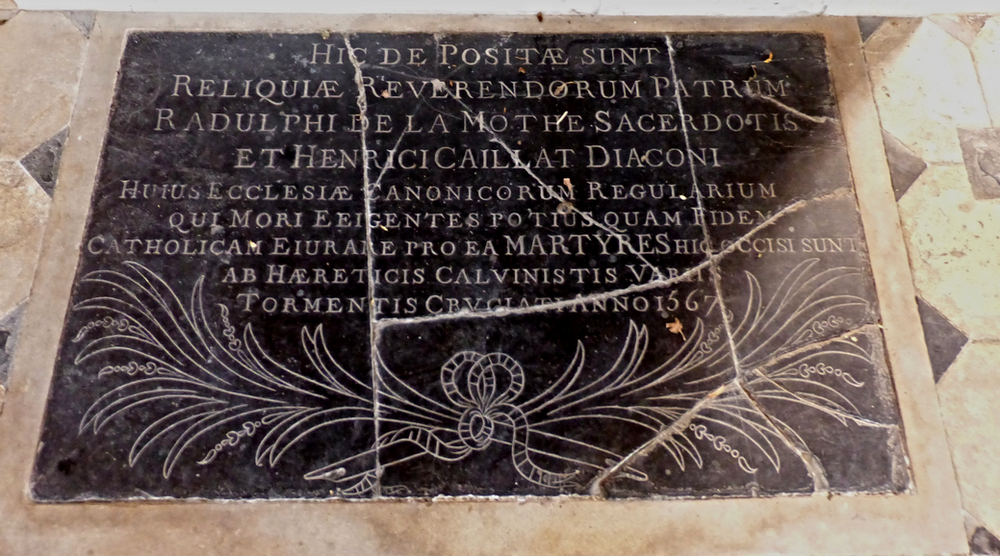 HIC DE POSITÆ SUNT
RELIQUIÆ REVERENDORUM PATRUM
RADULPHI DE LA MOTHE SACERDOTIS
ET HENRICI CAILLAT DIACONI
HUIUS ECCLESIÆ CANONICORUM REGULARIUM
QUI MORI EEIGENTES POTIUS QUAM FIDEM
CATHOLICAM EIURARE PRO EA MARTYRES HIC OCCISI SUNT
AB HÆRETICIS CALVINISTIS VARII
TORMENTIS CRVGIATI ANNO 1567